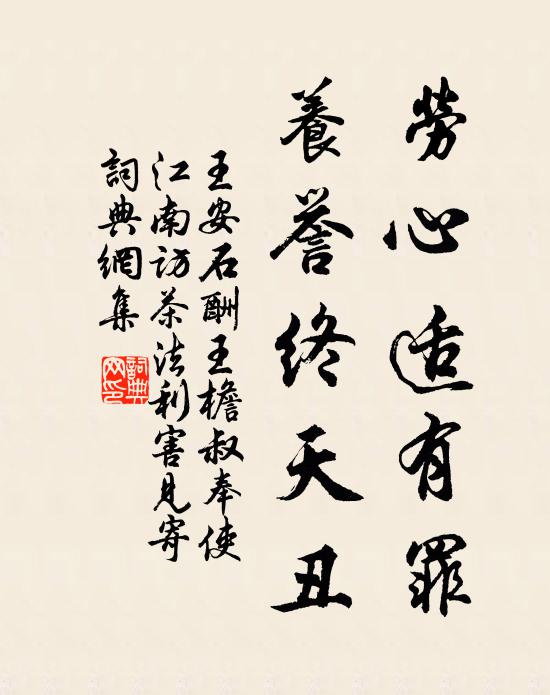 勞心适有罪
養誉终天丑
王安石酬王檐叔奉使
江南訪茶法利害見寄
詞典網集
詞典
网印